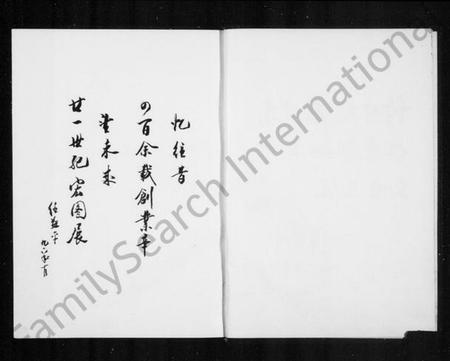 忆往昔
四百余载创业辛
望未来
廿一世纪宏图展
九六年一月
FamilySearch International